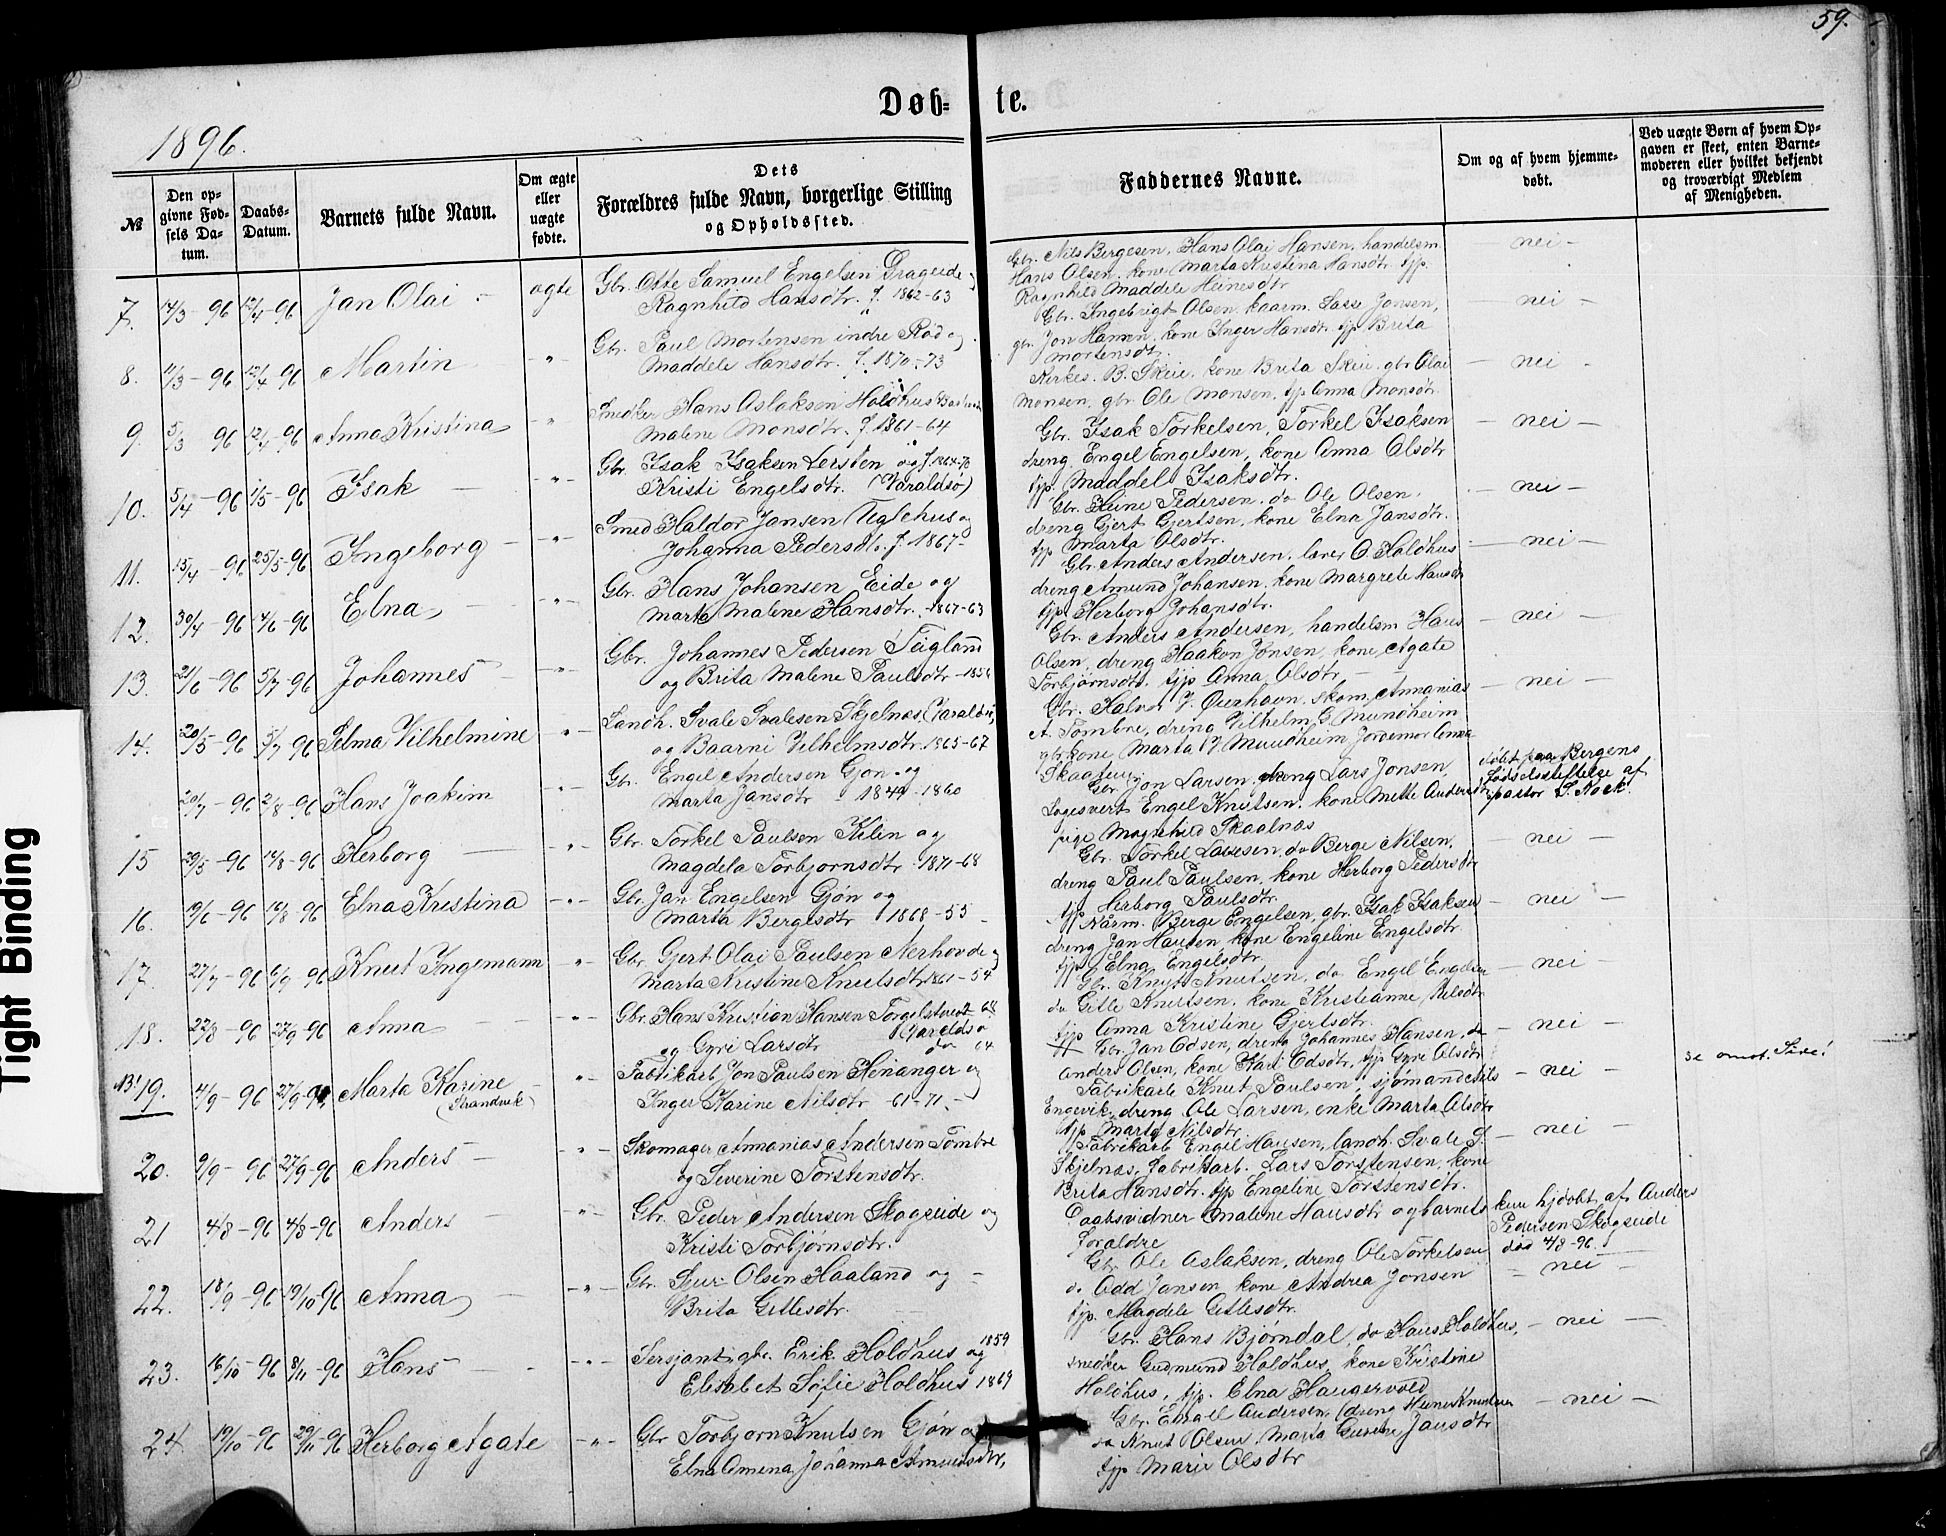 59.
Døb- te.
1896.
№
Den opgivne Fødsels Datum.
Daabs-Datum.
Barnets fulde Navn.
Om ægte eller uægte fødte.
Dets Forældres fulde Navn, borgerlige Stilling og Opholdssted.
Faddernes Navne.
Om og af hvem hjemmedøbt.
Ved uægte Børn af hvem Opgaven er skeet, enten Barnemoderen eller hvilket bekjendt og troværdigt Medlem af Menigheden.
7. 14/3 - 96 12/4 - 96 Jan Olai - ægte
Gbr. Otte Samuel Engelsen Drageide
Ragnhild Hansdtr. f. 1862-63
Gbr. Nils Bergesen, Hans Olai Hansen, handelsm.
Hans Olsen, kone Marta Kristina Hansdtr. tjp.
Ragnhild Maddele Heinesdtr
- nei -
8. 11/3 - 96 12/4 - 96 Martin - " -
Gbr. Paul Mortensen indre Rød og
Maddele Hansdtr. f. 1870-73
Gbr. Ingebrigt Olsen, kaarm. Lasse Jonsen,
gbr. Jon Hansen, kone Inger Hansdtr. tjp Brita
Mortensdtr.
- nei -
9. 5/3 96 12/4 - 96 Anna Kristina - " -
Snedker Hans Aslaksen Holdhus
Malene Monsdtr. f. 1861-64
Kirkes. B. Skeie, kone Brita Skeie, gbr Olai
Monsen, gbr. Ole Monsen, tjp Anna Monsdtr.
- nei -
10. 5/4 - 96 1/5 - 96 Isak - " -
Gbr. Isak Isaksen Lersten og f. 1864-70
Kristi Engelsdtr. (Varaldsø)
Gbr. Isak Torkelsen, Torkel Isaksen
dreng Engel Engelsen, kone Anna Olsdtr
tjp. Maddele Isaksdtr.
- nei -
11. 15/4 - 96 25/5 - 96 Ingeborg - " -
Smed Haldor Jansen Teglehus og
Johanna Pedersdtr. f. 1867-
Gbr. Heine Pedersen, do Ole Olsen,
dreng Gjert Gjertsen, kone Elna Jansdtr.
tjp Marta Olsdtr.
- nei -
12. 30/4 - 96 14/6 - 96 Elna - " -
Gbr. Hans Johansen Eide og
Marta Malene Hansdtr. - 1867-63
Gbr. Anders Andersen, lærer O. Holdhus
dreng Amund Johansen, kone Margrete Hansdtr
tjp. Herborg Johansdtr.
- nei -
13. 21/6 - 96 5/7 - 96 Johannes - " -
Gbr. Johannes Pedersen Tagland
og Brita Malene Paulsdtr - 1856
Gbr. Anders Andersen, handelsm Hans
Olsen, dreng Haakon Jonsen, kone Agate
Torbjørnsdtr. tjp Anna Olsdtr -
- nei -
14. 20/5 - 96 5/7 - 96 Selma Vilhelmine " -
Landh. Svale Svalesen Skjelnæs (Varaldsø)
og Baarni Vilhelmsdtr. 1865-67
Gbr. Halvor J. Øierhavn, skom. Annanias
A. Tombre, dreng Vilhelm G. Mundheim
gbrkone Marta J. Mundheim, Jordemor Anna
Skaatun
- nei -
20/7 - 96 2/8 - 96 Hans Joakim - " -
Gbr. Engel Andersen Gjøn og
Marta Jansdtr - 1844-1860
Gbr Jon Larsen, dreng Lars Jonsen,
Logsvert Engel Knutsen, kone Mette Andersdtr
pige Magnhild Skaalnæs
døbt paa Bergens
Fødselsstiftelse af
pastor S. Kock.
15 29/5 - 96 16/8 - 96 Herborg - " -
Gbr. Torkel Paulsen Kilen og
Magdela Torbjornsdtr. 1871-68
Gbr. Torkel Larsen, do Berge Nilsen,
dreng Paul Paulsen, kone Herborg Pedersdtr
tjp Herborg Paulsdtr.
- nei -
16. 19/6 - 96 16/8 - 96 Elna Kristina - " -
Gbr. Jan Engelsen Gjøn og
Marta Bergesdtr 1868-55
Kårm. Berge Engelsen, gbr. Isak Isaksen
dreng Jan Hansen, kone Engeline Engelsdtr.
tjp. Elna Engelsdtr.
- nei -
17. 27/7 - 96 6/9 96 Knut Ingemann "
Gbr. Gjert Olai Paulsen Nerhovde og
Marta Kristine Knutsdtr. 1861-54
Gbr. Knut Knutsen, do Engel Engelsen
do Gitle Knutsen, kone Kristianne Nilsdtr
tjp Anna Kristine Gjertsdtr.
- nei -
18. 22/8 - 96 27/9 - 96 Anna - " -
Gbr. Hans Kristian Hansen Torgelstveit 68
og Gyri Larsdtr Varaldsø do 64
Gbr Jan Odsen, dreng Johannes Hansen, do
Anders Olsen, kone Kari Odsdtr, tjp Gyri Olsdtr
- nei -
13! 19. 4/9 - 96 27/9 - 96 Marta Karine (Strandvik) "
Fabrikarb. Jon Paulsen Henanger og
Inger Karine Nilsdtr - 61-71. -
Fabrikarb Knut Paulsen, sjømand Nils
Engevik, dreng Ole Larsen, enke Marta Olsdtr
tjp. Marta Nilsdtr.
- nei -
se omst. Side!
20. 9/9 - 96 27/9 - 96 Anders - " -
Skomager Annanias Andersen Tombre
og Severine Torstensdtr.
Fabrikarb Engel Hansen, landh. Svale S.
Skjelnæs, fabrikarb. Lars Torstensen, kone
Brita Hansdtr. tjp Engeline Torstensdtr.
- nei -
21 4/8 - 96 4/8 - 96 Anders - " -
Gbr. Peder Andersen Skogseide og
Kristi Torbjørnsdtr.
Daabsvidner Malene Hansdtr og barnets
foraldre
kun hjdøbt af Anders
Pedersen Skogseide
død 4/8 - 96.
22. 18/9 - 96 19/10 - 96 Anna - " -
Gbr. Sjur Olsen Haaland og
Brita Gitlesdtr.
Gbr Ole Aslaksen, dreng Ole Torkelsen
do Odd Jansen kone Andrea Jonsen
tjp. Magdele Gitlesdtr.
- nei -
23. 16/10 - 96 8/11 - 96 Hans - " -
Sersjant, gbr. Erik Holdhus og 1859
Elisabet Sofie Holdhus 1869
Gbr. Hans Bjørndal, do Hans Holdhus,
snedker Gudmund Holdhus, kone Kristine
Holdhus, tjp. Elna Haugervold
- nei -
24. 19/10 - 96 29/11 - 96 Herborg Agate - " -
Gbr Torbjorn Knutsen Gjøn og
Elna Amena Johanna Amundsdtr,
Gbr. Andersen, dreng Heine Knutsen
do Knut Olsen, Marta Jansdtr
tjp Marie Olsdtr
- nei -
Tight Binding